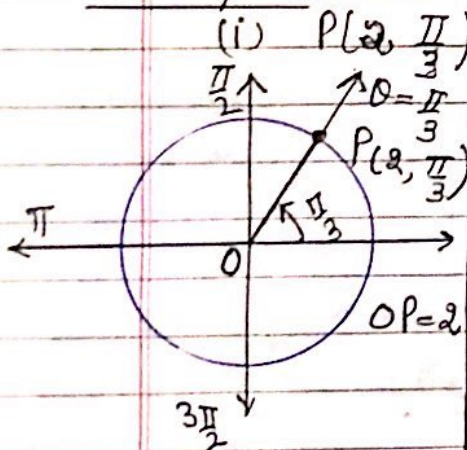 (i) P(2, π/3)
π/2
θ = π/3
P(2, π/3)
π/3
π
O
OP = 2
3π/2